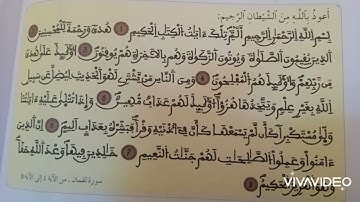 أعوذ بالله من الشيطان الرجيم:
بسم الله الرحمن الرحيم ألم تلك ءايات الكتاب الحكيم 1 هدى ورحمة للمحسنين
الذين يقيمون الصلوة ويوتون الزكوة وهم بالاخرة هم يوقنون أوليك على هدى
من ربهم وأوليك هم المفلحون ومن الناس من يشتري لهو الحديث ليضل عن سبيل
الله بغير علم ويتخذها هزؤا أوليك لهم عذاب مهين وإذا تتلى عليه ءاياتنا
ولى مستكبرا كأن لم يسمعها كأن في أذنيه وقرا فبشره بعذاب اليم إن الذين
ءامنوا وعملوا الصالحات لهم جنات النعيم خالدين فيها وعد الله حقا
وهو العزيز الحكيم
سورة لقمان . من الآية 1 إلى الآية 8
VIVAVIDEO